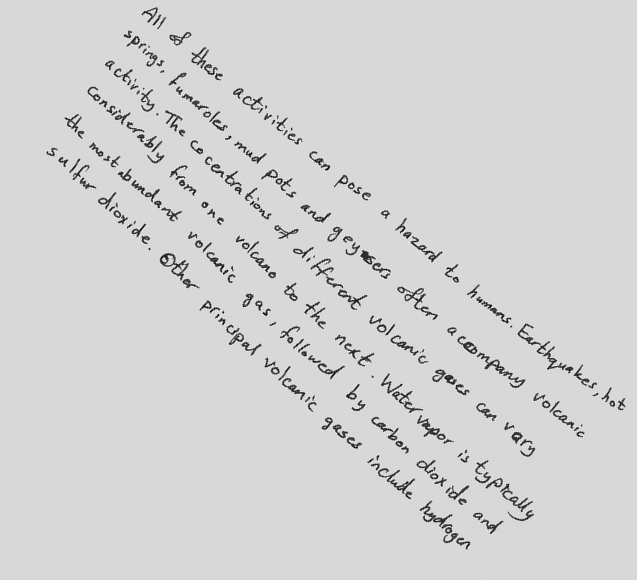 All of these activities can pose a hazard to humans. Earthquakes, hot
springs, fumaroles, mud pots and geysers often accompany volcanic
activity. The cocentrations of different volcanic gases can vary
considerably from one volcano to the next. Water vapor is typically
the most abundant volcanic gas, followed by carbon dioxide and
sulfur dioxide. Other principal volcanic gases include hydrogen